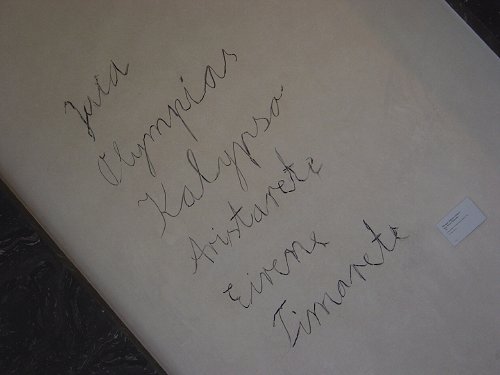 Iaia
Olympias
Kalypso
Aristarete
Eirene
Timarete